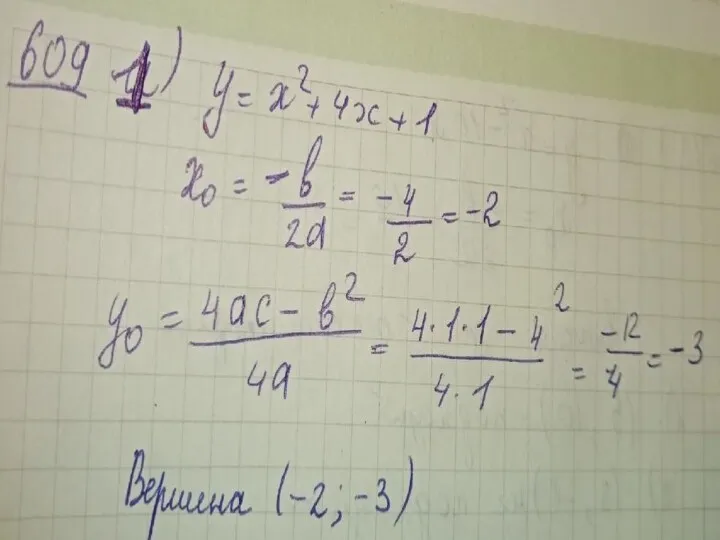 609 1) y = x² + 4x + 1
x₀ = -b/2a = -4/2 = -2
y₀ = (4ac - b²)/4a = (4·1·1 - 4²)/(4·1) = -12/4 = -3
Вершина (-2; -3)